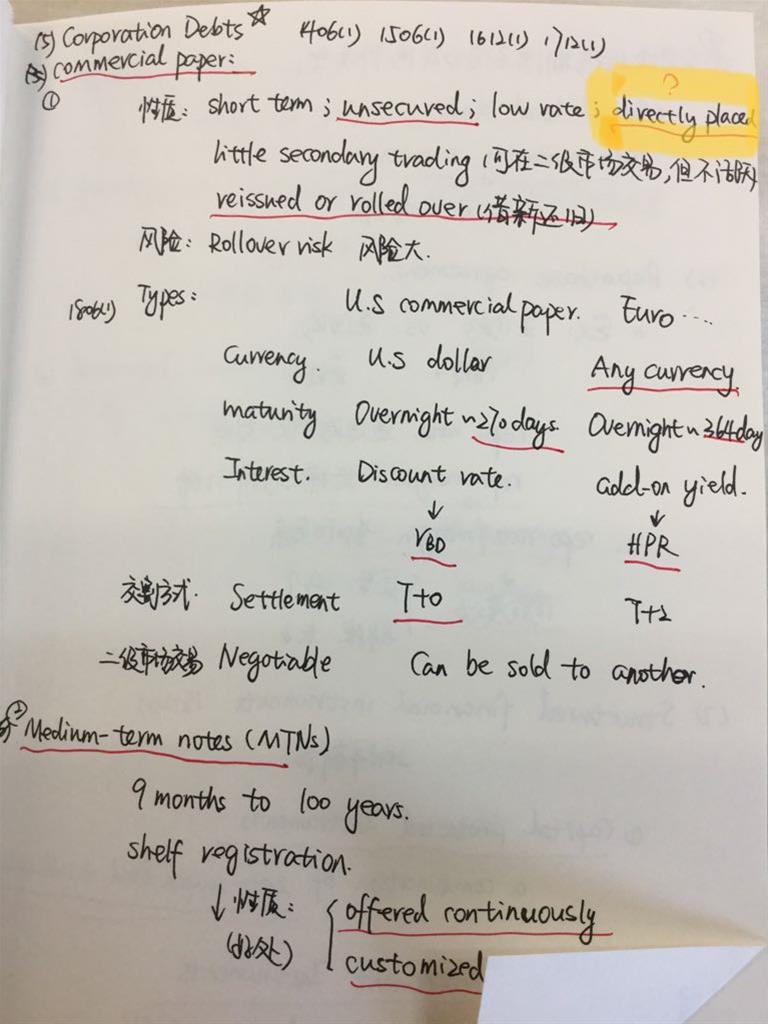 (5) Corporation Debts ☆ 1406(1) 1506(1) 1612(1) 1712(1)
commercial paper:
①
?
性质: short term; unsecured; low rate; directly placed
little secondary trading (可在二级市场交易,但不活跃)
reissued or rolled over (借新还旧)
风险: Rollover risk 风险大.
1806(1) Types: U.S commercial paper. Euro ...
Currency. U.S dollar Any currency
maturity Overnight ~ 270 days. Overnight ~ 364 day
Interest. Discount rate. add-on yield.
↓ ↓
rBD HPR
交割方式. Settlement T+0 T+2
二级市场交易 Negotiable Can be sold to another.
② Medium-term notes (MTNs)
9 months to 100 years.
shelf registration.
↓ 性质: { offered continuously
(好处) customized